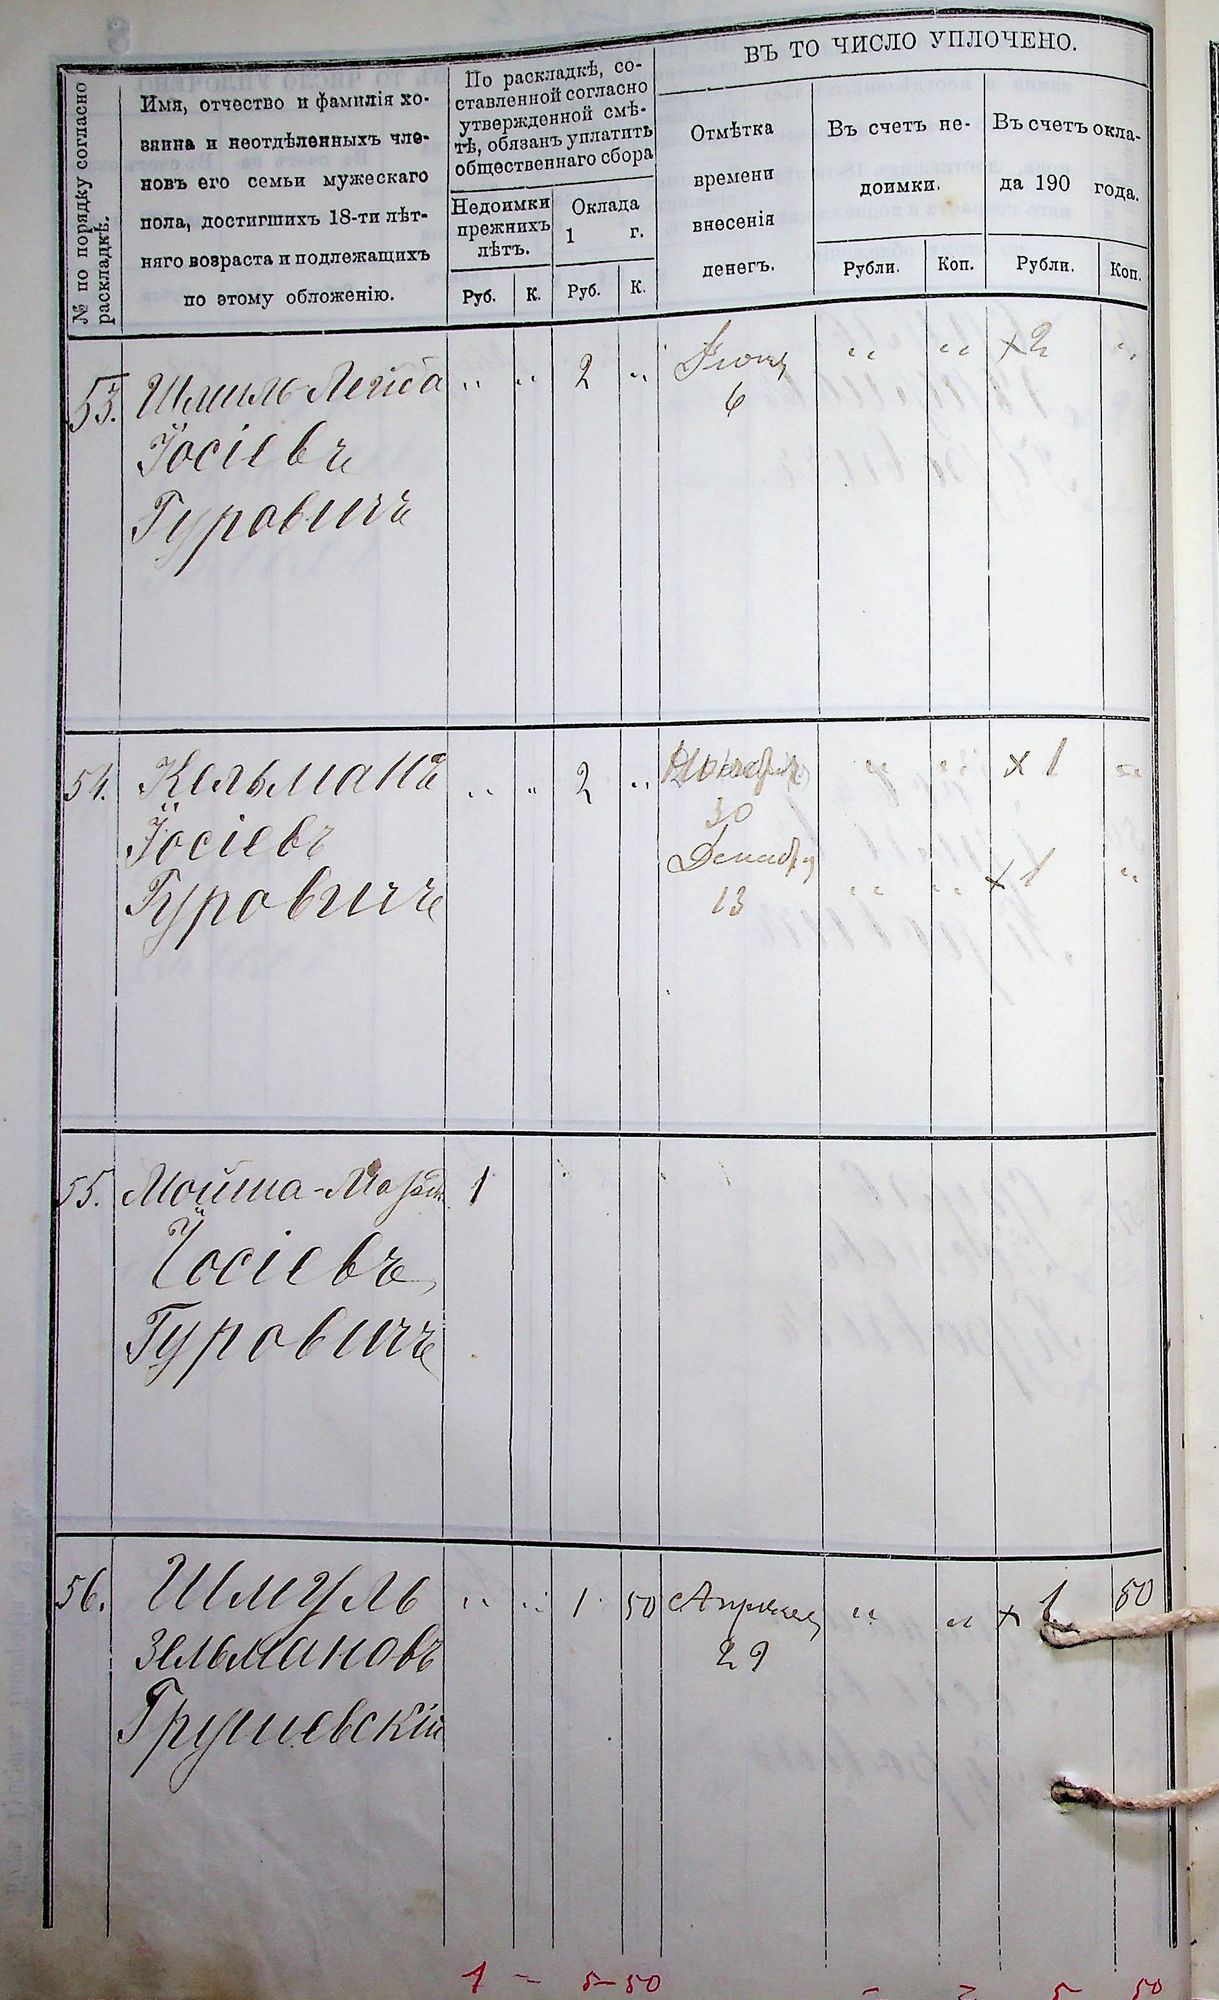 № по порядку согласно раскладкѣ.
Имя, отчество и фамилія хо-
зяина и неотдѣленныхъ чле-
новъ его семьи мужескаго
пола, достигшихъ 18-ти лѣт-
няго возраста и подлежащихъ
по этому обложенію.
По раскладкѣ, со-
ставленной согласно
утвержденной смѣ-
тѣ, обязанъ уплатить
общественнаго сбора
Недоимки
прежнихъ
лѣтъ.
Оклада
1 г.
Руб. К. Руб. К.
ВЪ ТО ЧИСЛО УПЛОЧЕНО.
Отмѣтка
времени
внесенія
денегъ.
Въ счетъ не-
доимки.
Въ счетъ окла-
да 190 года.
Рубли. Коп. Рубли. Коп.
53. Шмуль Лейба " " 2 " " " × 2 "
6
Іосіевъ
Гуровичъ
54. Кельманъ " " 2 " Ноября " " × 1 "
30
Іосіевъ
Декабря " " × 1 "
13
Гуровичъ
55. Мойша- 1
Іосіевъ
Гуровичъ
56. Шмуль " " 1 50 Апреля " " × 1 50
29
Зельмановъ
Грушевскій
1 - 5-50 - 5 50